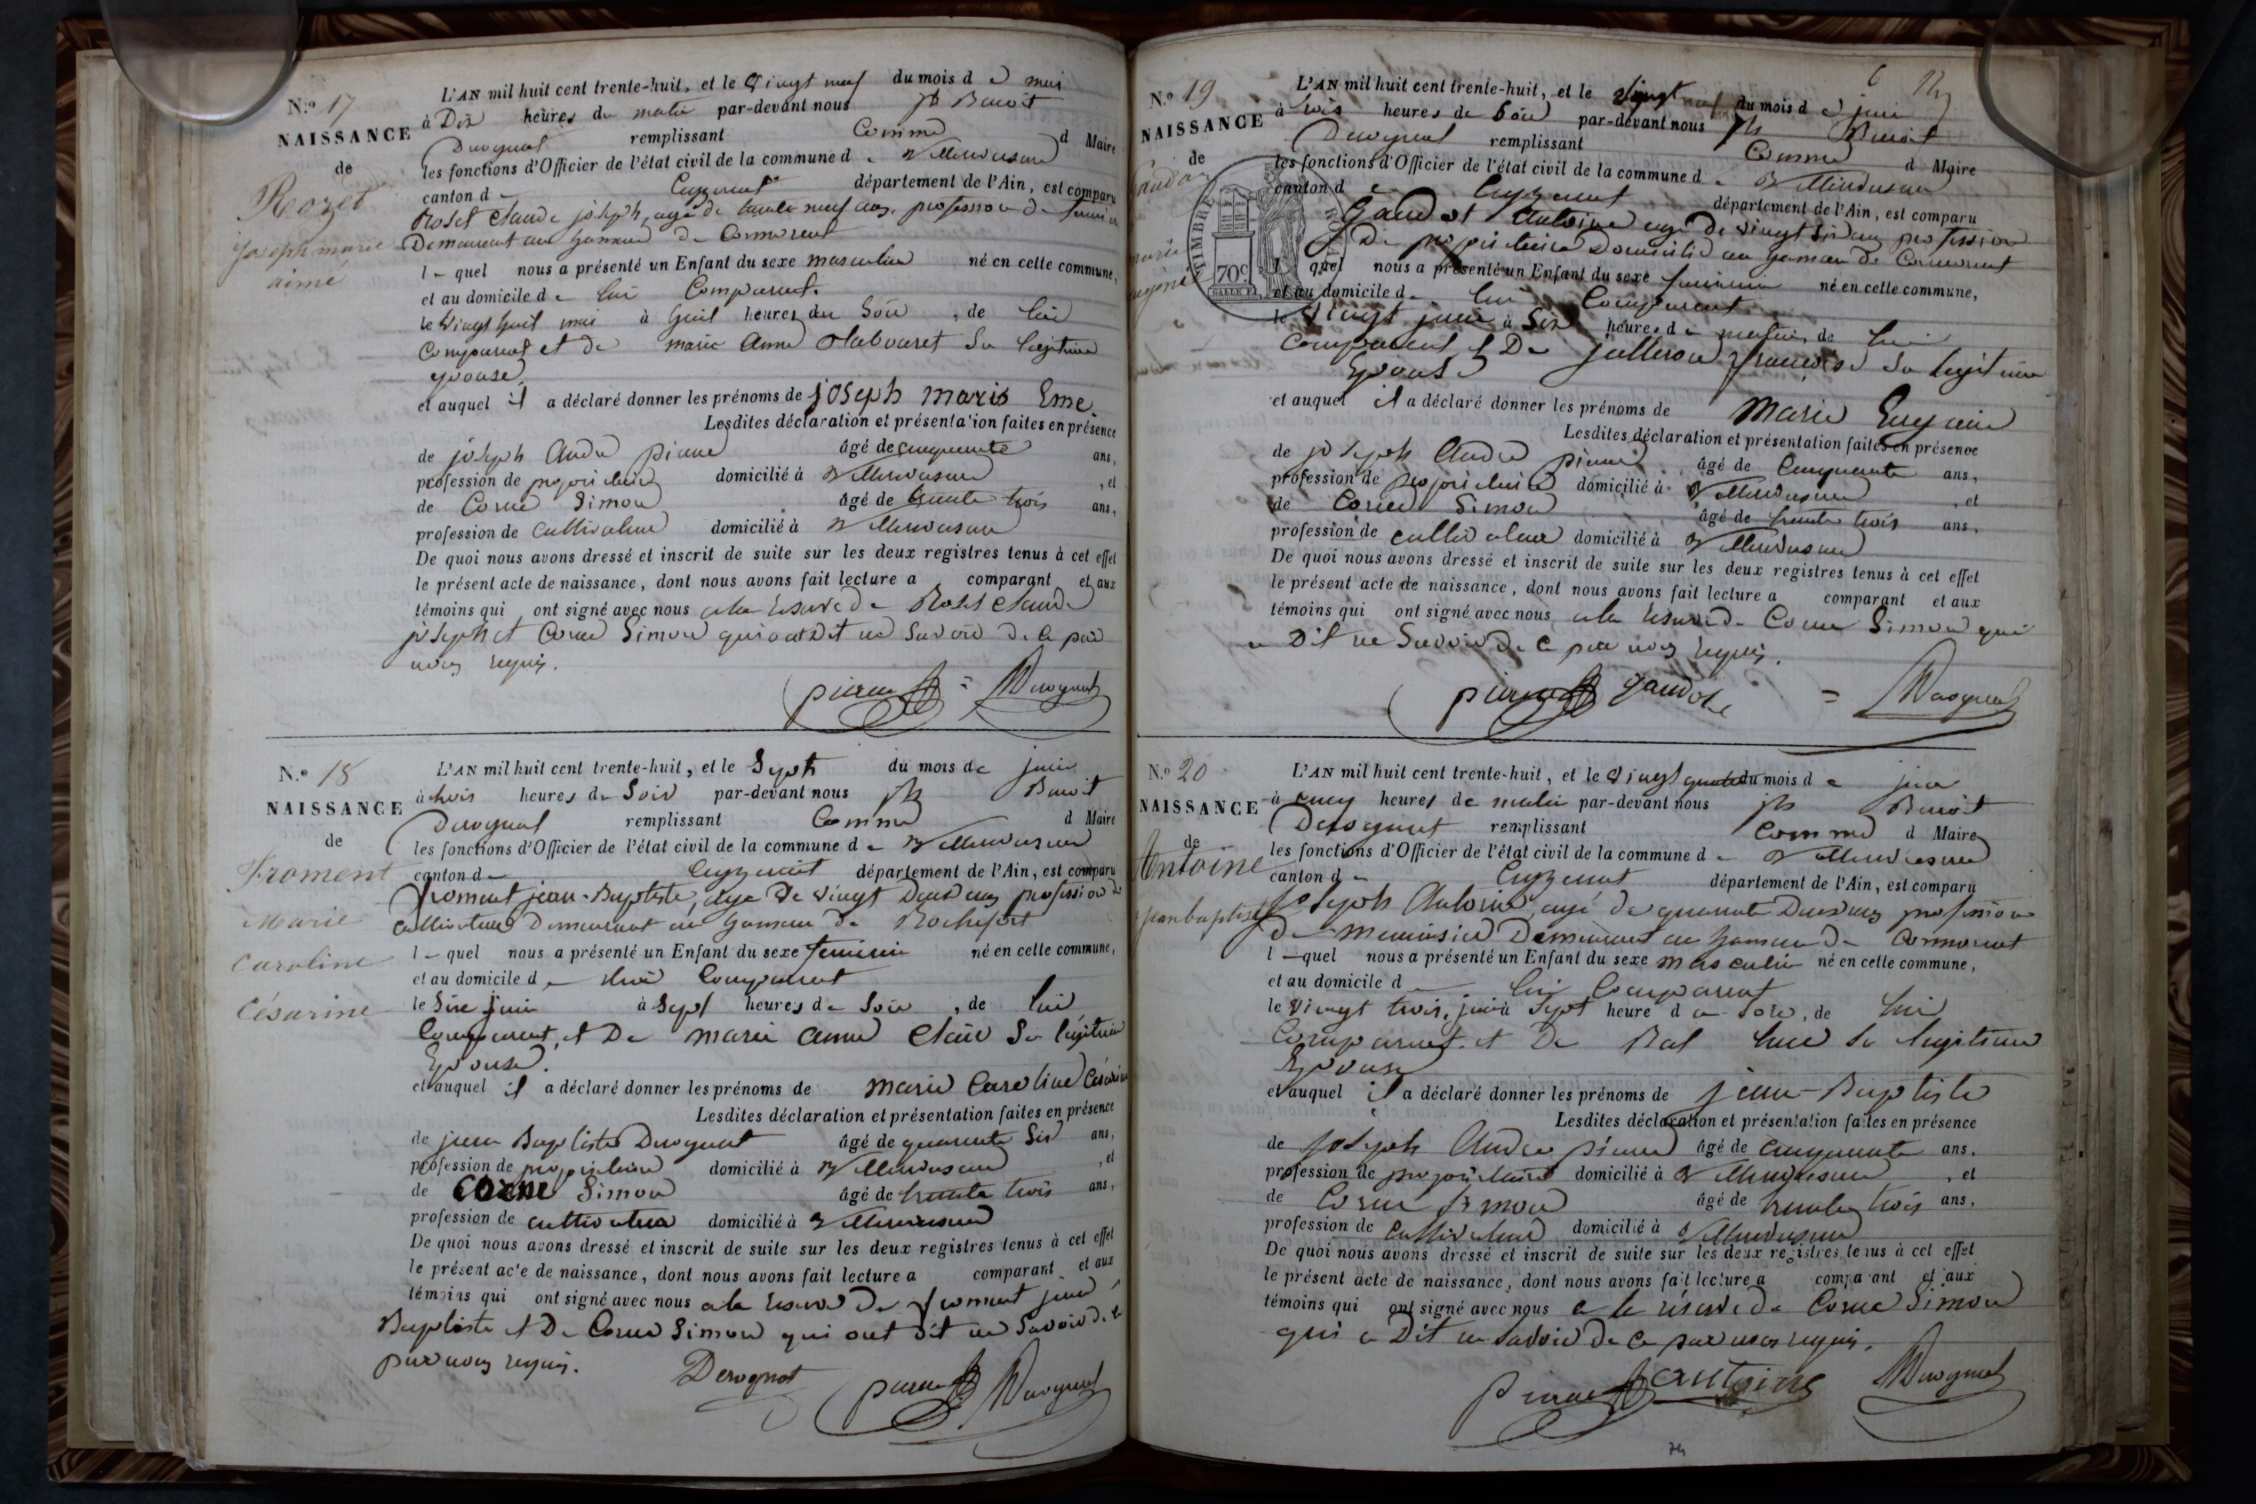 N.º 17
NAISSANCE
de
Rozet
joseph marie
aimé
L'AN mil huit cent trente-huit, et le vingt neuf du mois de mai
à Dix heures du matin par-devant nous jh Benoit
Derognat remplissant Comme d Maire
les fonctions d'Officier de l'état civil de la commune de Villereversure
canton de Ceyzeriat département de l'Ain, est comparu
Roset Claude joseph, agé de trente neuf ans, profession de
Demeurant au hameau de Cormorent
l-quel nous a présenté un Enfant du sexe masculin né en cette commune,
et au domicile de lui Comparent.
le vingt huit mai à huit heures du Soir, de lui
Comparent et de marie Anne Rabouret Sa légitime
épouse,
et auquel il a déclaré donner les prénoms de joseph marie Eme.
Lesdites déclaration et présentation faites en présence
de joseph André pirave âgé de cinquante ans,
profession de propriétaire domicilié à Villereversure, et
de Corne Simon âgé de trente trois ans,
profession de cultivateur domicilié à Villereversure
De quoi nous avons dressé et inscrit de suite sur les deux registres tenus à cet effet
le présent acte de naissance, dont nous avons fait lecture a comparant et aux
témoins qui ont signé avec nous a la réserve de Roset Claude
joseph et Corne Simon qui ont dit ne Savoir de ce par
nous requis.
Derognat
N.º 18
NAISSANCE
de
Froment
Marie
Caroline
Césarine
L'AN mil huit cent trente-huit, et le Septh du mois de juin
à trois heures de Soir par-devant nous jh Benoit
Derognat remplissant Comme d Maire
les fonctions d'Officier de l'état civil de la commune de Villereversure
canton de Ceyzeriat département de l'Ain, est comparu
froment jean-Baptiste, age de vingt Deux ans profession de
cultivateur Demeurant au hameau de Rochefort
l-quel nous a présenté un Enfant du sexe feminin né en cette commune,
et au domicile de lui Comparent
le Sixe juin à Sept heures de Soir, de lui
Comparent, et De marie anne Clair Sa légitime
Epouse.
et auquel il a déclaré donner les prénoms de marie Caroline Césarine
Lesdites déclaration et présentation faites en présence
de jean Baptiste Derognat âgé de quarante Six ans,
profession de propriétaire domicilié à Villereversure, et
de Corne Simon âgé de trente trois ans,
profession de cultivateur domicilié à Villereversure
De quoi nous avons dressé et inscrit de suite sur les deux registres tenus à cet effet
le présent acte de naissance, dont nous avons fait lecture a comparant et aux
témoins qui ont signé avec nous a la réserve De froment jean
Baptiste et De Corne Simon qui ont dit ne Savoir de ce
par nous requis.
Derognat Derognat
N.º 19
NAISSANCE
de
marie
L'AN mil huit cent trente-huit, et le vingt du mois de juin
à trois heures de Soir par-devant nous jh Benoit
Derognat remplissant Comme d Maire
les fonctions d'Officier de l'état civil de la commune de Villereversure
canton de Ceyzeriat département de l'Ain, est comparu
Gaudot Antoine age de vingt Six ans profession
De propriétaire Domicilié au hameau de Cormorent
l quel nous a présenté un Enfant du sexe feminin né en cette commune,
et au domicile de lui Comparent
le vingt juin à Six heures de matin, de lui
Comparent et De julleron françoise Sa légitime
Epouse
et auquel il a déclaré donner les prénoms de Marie Eugenie
Lesdites déclaration et présentation faites en présence
de joseph André pirave âgé de Cinquante ans,
profession de propriétaire domicilié à Villereversure, et
de Corne Simon âgé de trente trois ans,
profession de cultivateur domicilié à Villereversure
De quoi nous avons dressé et inscrit de suite sur les deux registres tenus à cet effet
le présent acte de naissance, dont nous avons fait lecture a comparant et aux
témoins qui ont signé avec nous a la réserve de Corne Simon qui
a Dit ne Savoir De ce par nous requis.
gaudot Derognat
TIMBRE
70c
N.º 20
NAISSANCE
de
Antoine
jean baptiste
L'AN mil huit cent trente-huit, et le vingt quatre du mois de juin
à cinq heures de matin par-devant nous jh Benoit
Derognat remplissant Comme d Maire
les fonctions d'Officier de l'état civil de la commune de Villereversure
canton de Ceyzeriat département de l'Ain, est comparu
joseph Antoine, agé de quarante Deux ans profession
De menuisier Demeurant au hameau De Cormorent
l-quel nous a présenté un Enfant du sexe masculin né en cette commune,
et au domicile d lui Comparent
le vingt trois, juin à Sept heure d u Soir, de lui
Comparent. et De Sa légitime
Epouse
et auquel il a déclaré donner les prénoms de jean-Baptiste
Lesdites déclaration et présentation faites en présence
de joseph André pirave âgé de cinquante ans,
profession de propriétaire domicilié à Villereversure, et
de Corne Simon âgé de trente trois ans,
profession de cultivateur domicilié à Villereversure
De quoi nous avons dressé et inscrit de suite sur les deux registres tenus à cet effet
le présent acte de naissance, dont nous avons fait lecture a comparant et aux
témoins qui ont signé avec nous a la réserve de Corne Simon
qui a Dit ne Savoir De ce par nous requis.
antoine Derognat
74